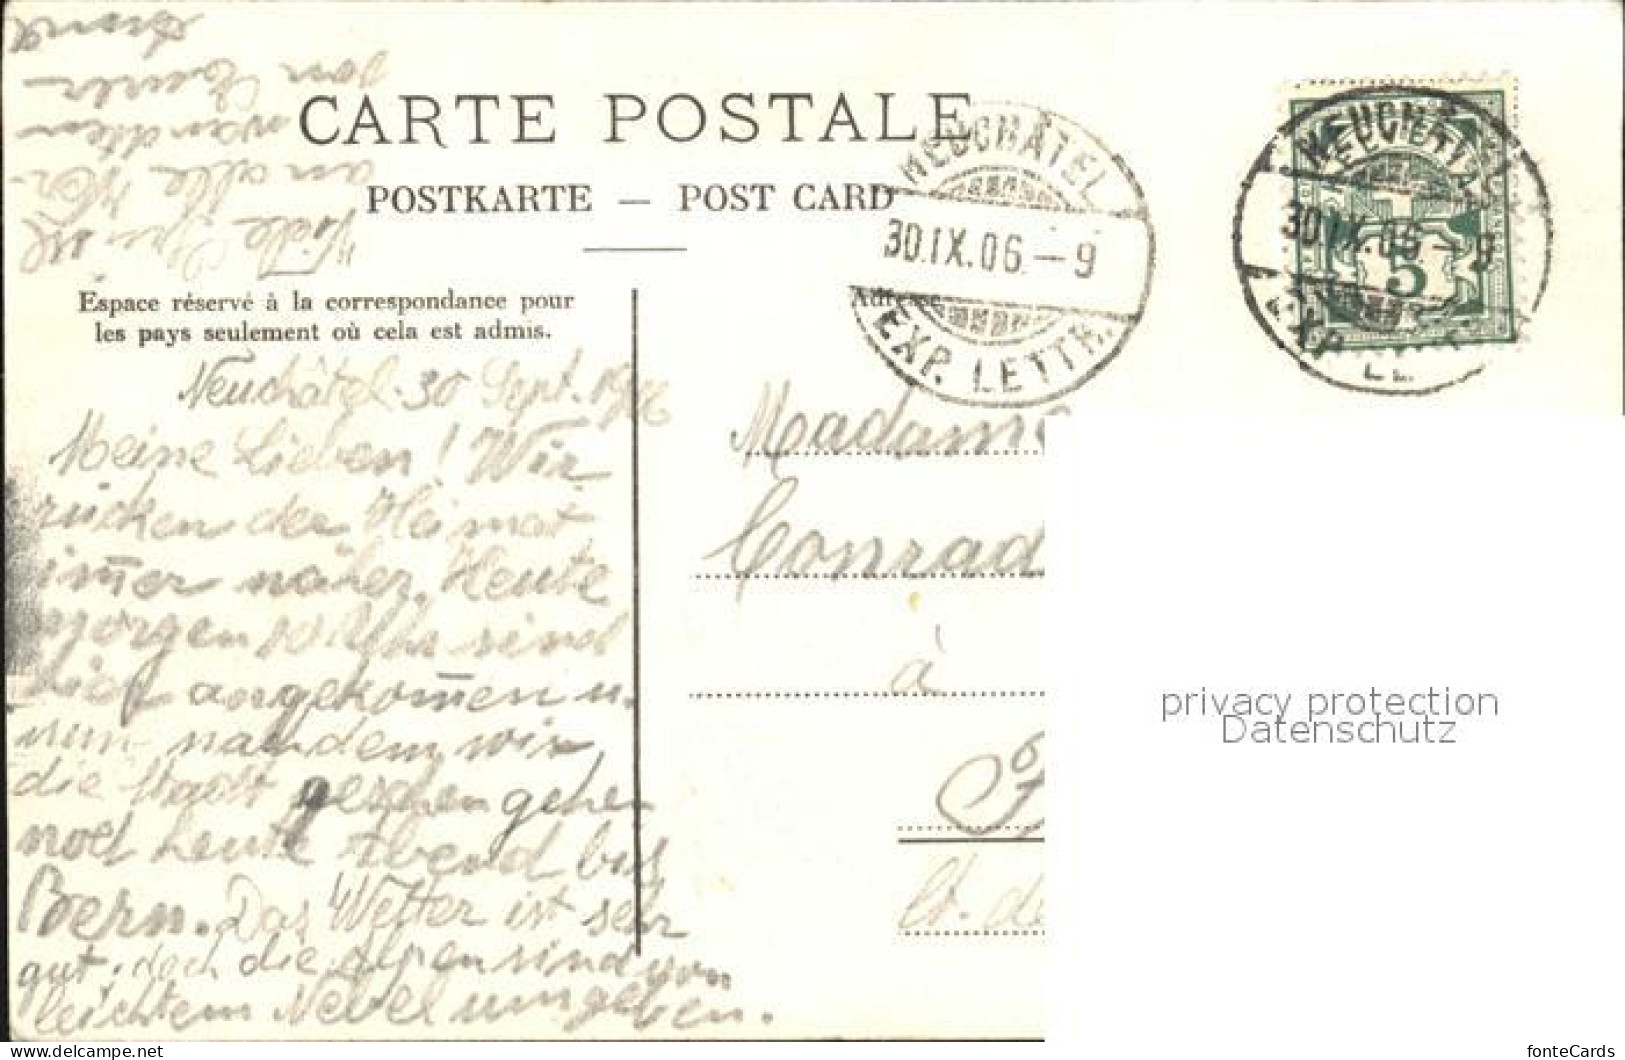 CARTE POSTALE
POSTKARTE — POST CARD
Espace réservé à la correspondance pour
les pays seulement où cela est admis.
Adresse
NEUCHÂTEL
30.IX.06.–9
EXP. LETTR.
NEUCHÂTEL
30.IX.06–9
EXP. LE
HELVETIA
5
Neuchâtel 30 Sept. 1906
Meine Lieben! Wir
rücken der Heimat
im̄er näher. Heute
Morgen 10 Uhr sind
hier angekom̄en u.
nun nachdem wir
die Stadt gesehen gehen
noch heute Abend bis
Bern. Das Wetter ist sehr
gut, doch die Alpen sind von
leichtem Nebel umgeben.
Viele Grüsse
an alle Ver-
wandten
von Eurer
Madame
Conrad
à
Ct. de
privacy protection
Datenschutz
https://www.delcampe.net
fonteCards